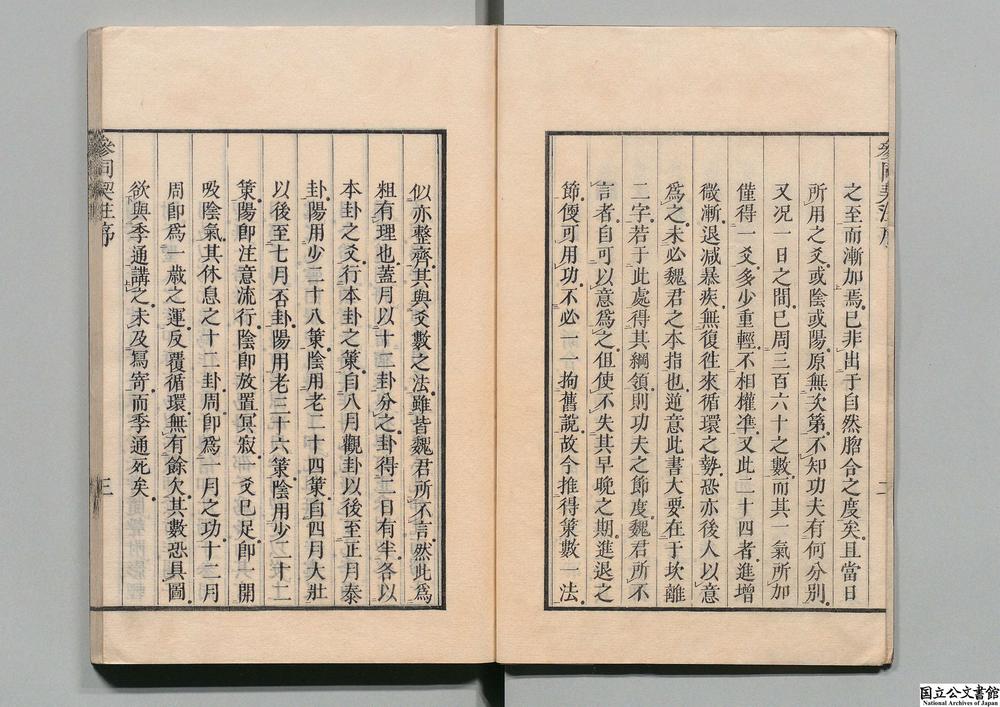 之至而漸加焉已非出于自然脗合之度矣且當日
所用之爻或陰或陽原無次第不知功夫有何分別
又况一日之間已周三百六十之數而其一氣所加
僅得一爻多少重輕不相權凖又此二十四者進增
微漸退減暴疾無復徃來循環之勢恐亦後人以意
爲之未必魏君之本指也逆意此書大要在于坎離
二字若于此處得其綱領則功夫之節度魏君所不
言者自可以意爲之但使不失其早晚之期進退之
節便可用功不必一一拘舊說故今推得策數一法
似亦整齊其與爻數之法雖皆魏君所不言然此爲
粗有理也蓋月以十二卦分之卦得二日有半各以
本卦之爻行本卦之策自八月觀卦以後至正月泰
卦陽用少二十八策陰用老二十四策自四月大壯
以後至七月否卦陽用老三十六策陰用少三十二
策陽卽注意流行陰卽放置冥寂一爻已足卽一開
吸陰氣其休息之十二卦周卽爲一月之功十二月
周卽爲一歲之運反覆循環無有餘欠其數恐具圖
欲與季通講之未及寫寄而季通死矣
參同契註序
三
国立公文書館
National Archives of Japan